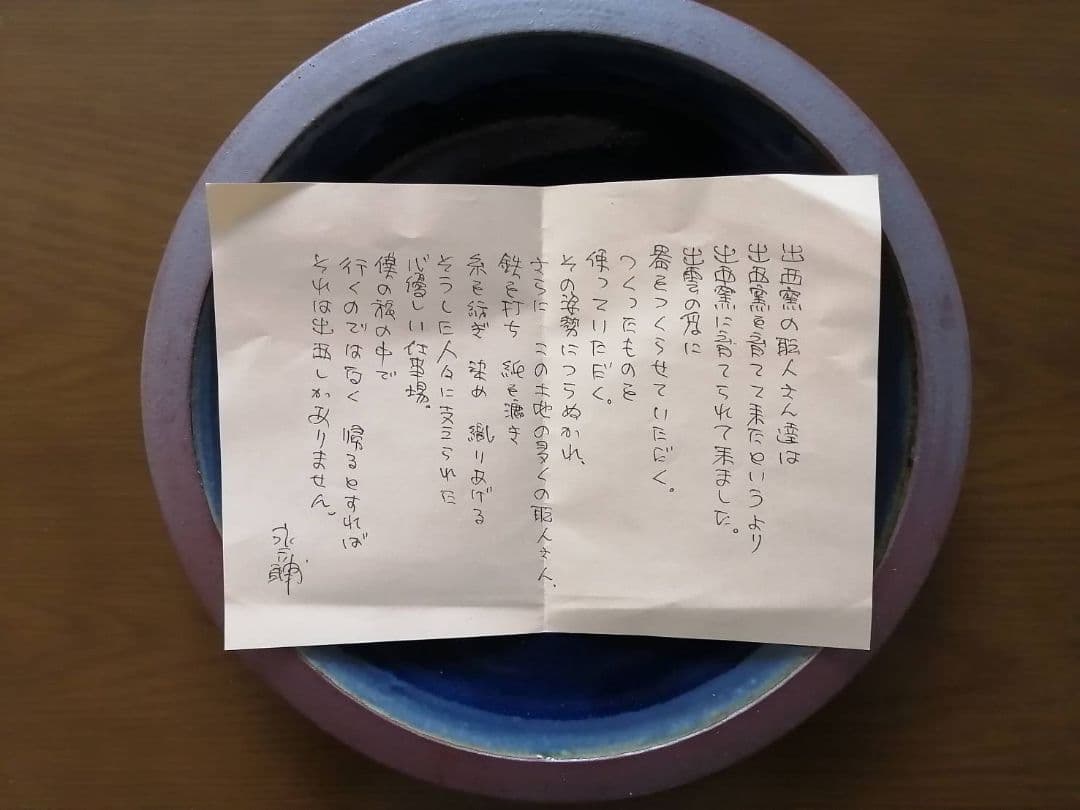 出西窯の職人さん達は
出西窯を育てて来たというより
出西窯に育てられて来ました。
出雲の度に
器をつくらせていただく。
つくったものを
使っていただく。
その姿勢につらぬかれ、
さらに この土地の多くの職人さん、
鉄を打ち 紙を漉き
糸を紡ぎ 染め 織りあげる
そうした人々に支えられた
心優しい仕事場。
僕の旅の中で
行くのではなく 帰るとすれば
それは出西しかありません。
永六輔